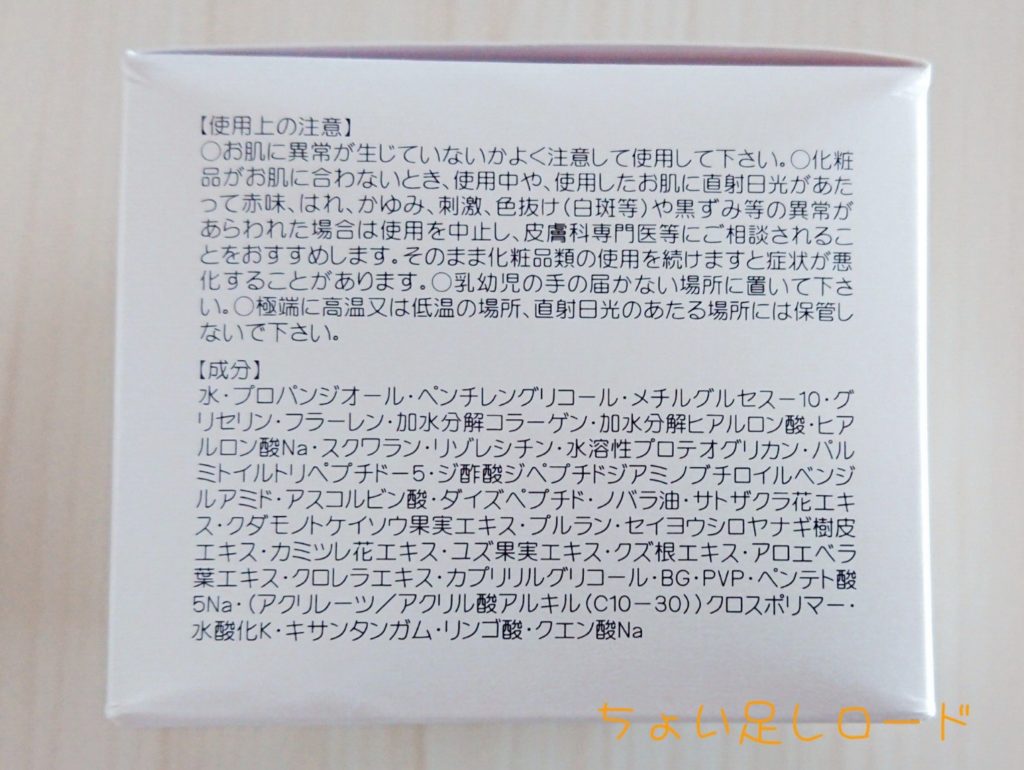 【使用上の注意】
○お肌に異常が生じていないかよく注意して使用して下さい。○化粧
品がお肌に合わないとき、使用中や、使用したお肌に直射日光があた
って赤味、はれ、かゆみ、刺激、色抜け(白斑等)や黒ずみ等の異常が
あらわれた場合は使用を中止し、皮膚科専門医等にご相談されるこ
とをおすすめします。そのまま化粧品類の使用を続けますと症状が悪
化することがあります。○乳幼児の手の届かない場所に置いて下さ
い。○極端に高温又は低温の場所、直射日光のあたる場所には保管し
ないで下さい。
【成分】
水・プロパンジオール・ペンチレングリコール・メチルグルセス－10・グ
リセリン・フラーレン・加水分解コラーゲン・加水分解ヒアルロン酸・ヒア
ルロン酸Na・スクワラン・リゾレシチン・水溶性プロテオグリカン・パル
ミトイルトリペプチド－5・ジ酢酸ジペプチドジアミノブチロイルベンジ
ルアミド・アスコルビン酸・ダイズペプチド・ノバラ油・サトザクラ花エキ
ス・クダモノトケイソウ果実エキス・プルラン・セイヨウシロヤナギ樹皮
エキス・カミツレ花エキス・ユズ果実エキス・クズ根エキス・アロエベラ
葉エキス・クロレラエキス・カプリリルグリコール・BG・PVP・ペンテト酸
5Na・(アクリレーツ／アクリル酸アルキル(C10－30))クロスポリマー・
水酸化K・キサンタンガム・リンゴ酸・クエン酸Na
ちょい足しロード